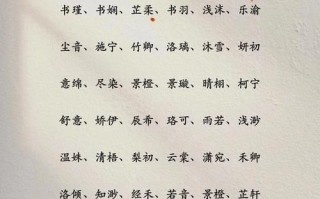 书瑾、书娴、芷柔、书羽、浅沐、乐渝
尘音、施宁、竹卿、洛璃、沐雪、妍初
意绵、尽染、景橙、景璇、晴栩、柯宁
舒意、娇伊、辰希、珞可、雨若、浅渺
温姝、清梧、梨初、云棠、潇宛、禾卿
洛倾、知渺、经禾、若音、景橙、芷轩